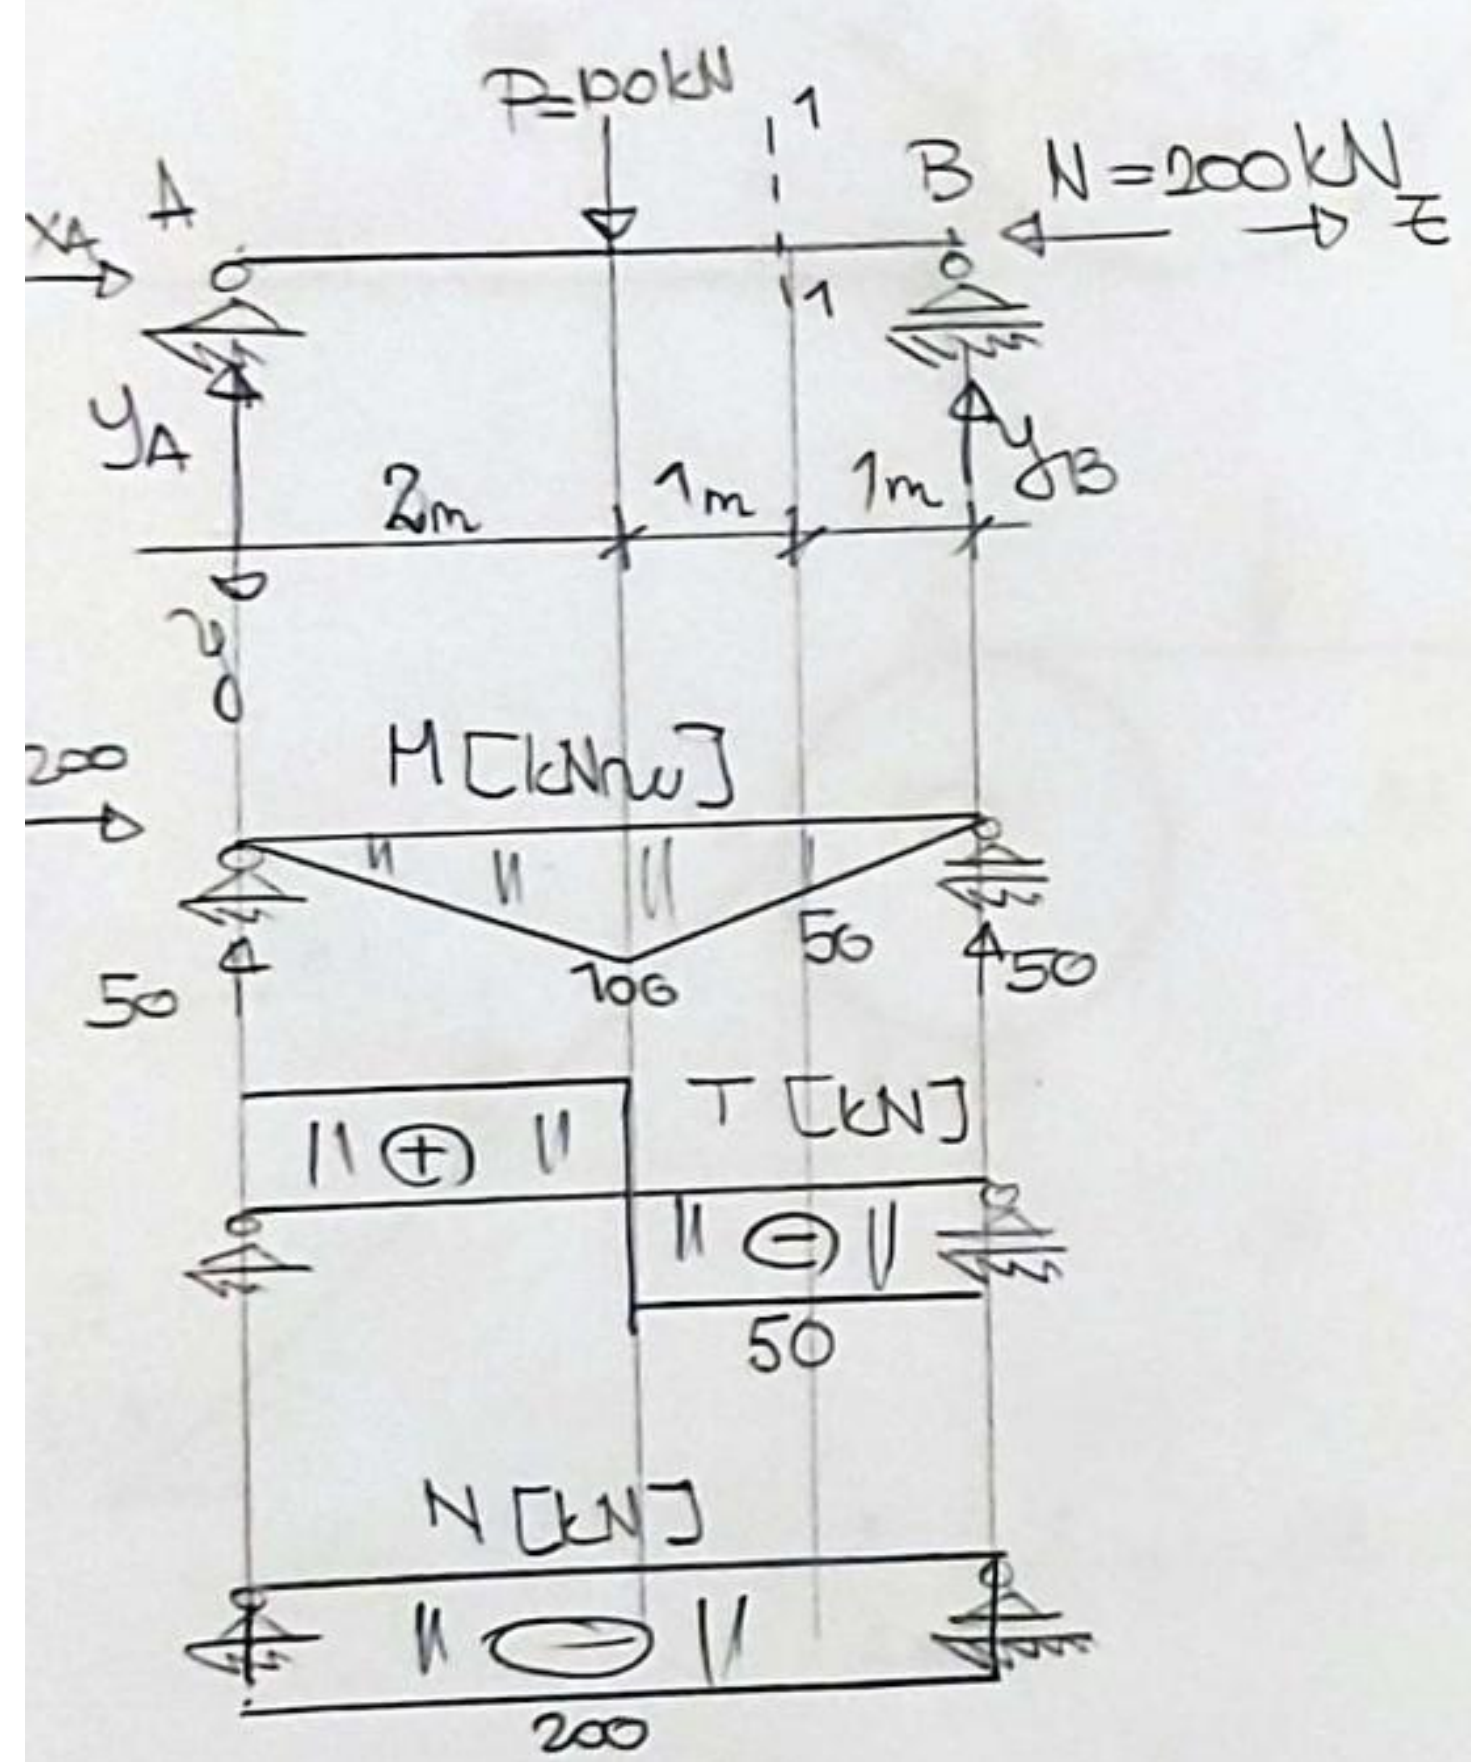 P=100kN
1
A
B
N=200kN
z
XA
1
yA
yB
2m
1m
1m
y
M[kNm]
200
50
100
50
50
T [kN]
+
-
50
N [kN]
-
200